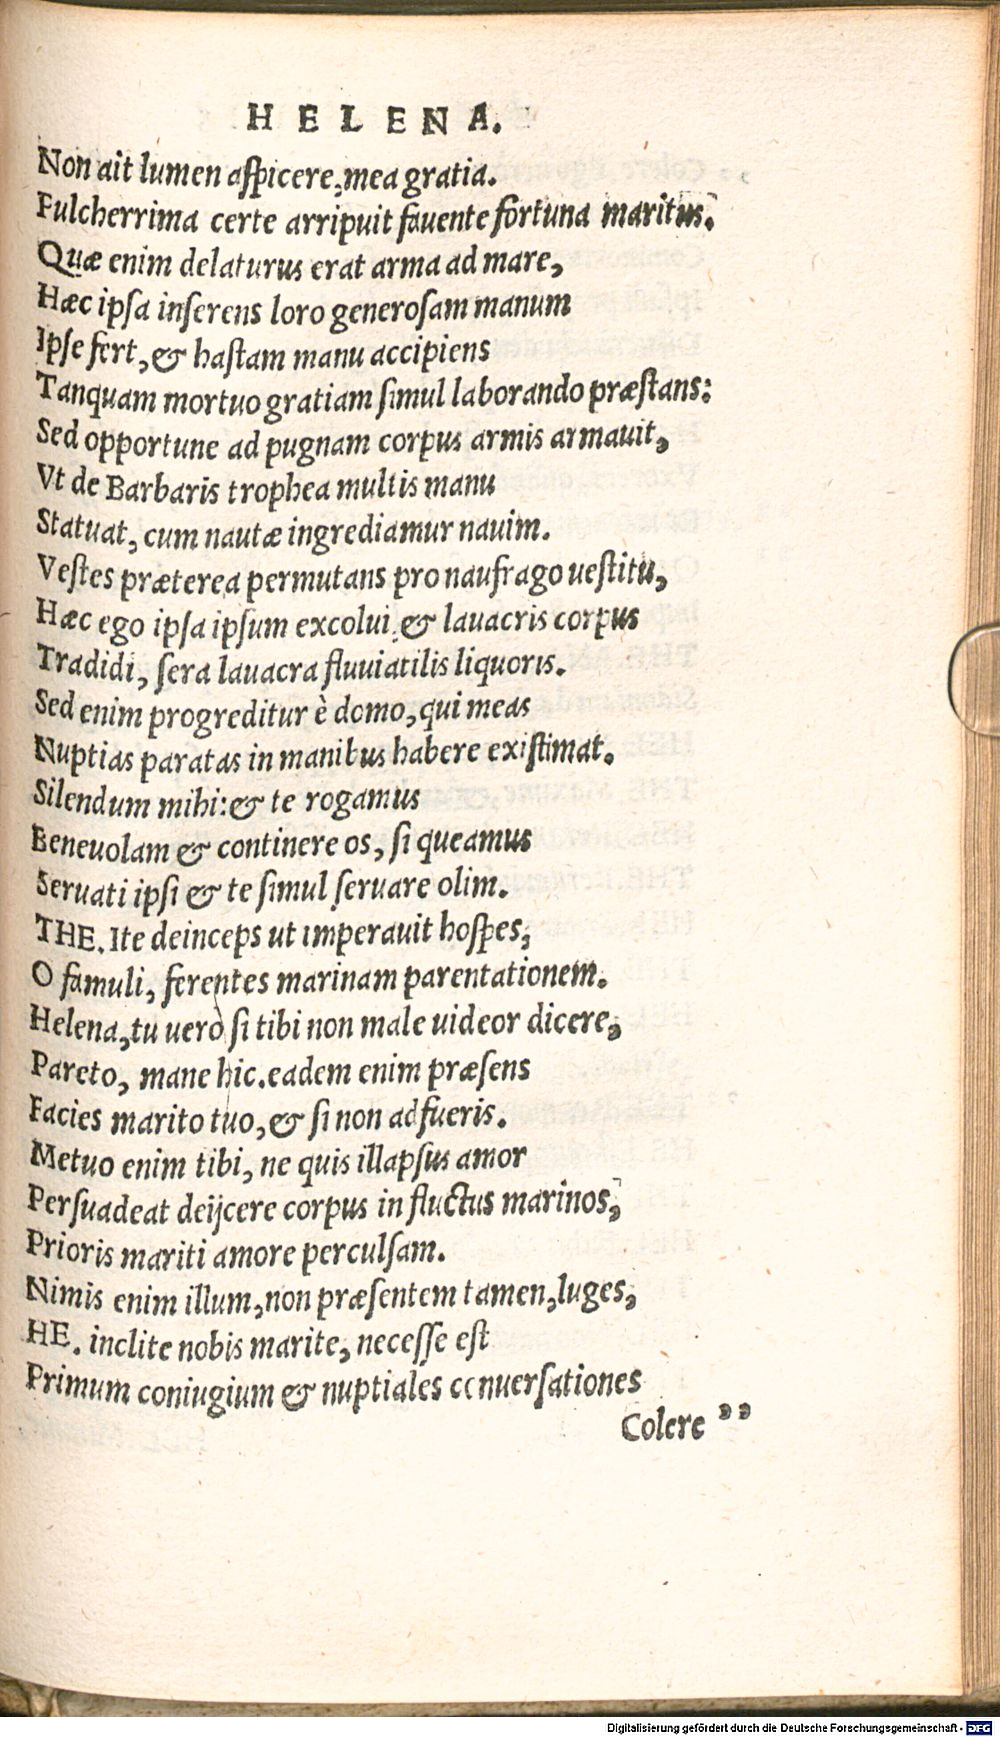 HELENA.
Non ait lumen aspicere, mea gratia.
Pulcherrima certe arripuit favente fortuna maritus.
Quæ enim delaturus erat arma ad mare,
Hæc ipsa inserens loro generosam manum
Ipse fert, & hastam manu accipiens
Tanquam mortuo gratiam simul laborando præstans:
Sed opportune ad pugnam corpus armis armauit,
Vt de Barbaris trophea multis manu
Statuat, cum nautæ ingrediamur nauim.
Vestes præterea permutans pro naufrago uestitu,
Hæc ego ipsa ipsum excolui, & lauacris corpus
Tradidi, sera lauacra fluuiatilis liquoris.
Sed enim progreditur è domo, qui meas
Nuptias paratas in manibus habere existimat.
Silendum mihi: & te rogamus
Beneuolam & continere os, si queamus
Seruati ipsi & te simul seruare olim.
THE. Ite deinceps ut imperauit hospes,
O famuli, ferentes marinam parentationem.
Helena, tu uerò si tibi non male uideor dicere,
Pareto, mane hic. eadem enim præsens
Facies marito tuo, & si non adfueris.
Metuo enim tibi, ne quis illapsus amor
Persuadeat deijcere corpus in fluctus marinos,
Prioris mariti amore perculsam.
Nimis enim illum, non præsentem tamen, luges,
HE. inclite nobis marite, necesse est
Primum coniugium & nuptiales conuersationes
Colere ”
Digitalisierung gefördert durch die Deutsche Forschungsgemeinschaft - DFG